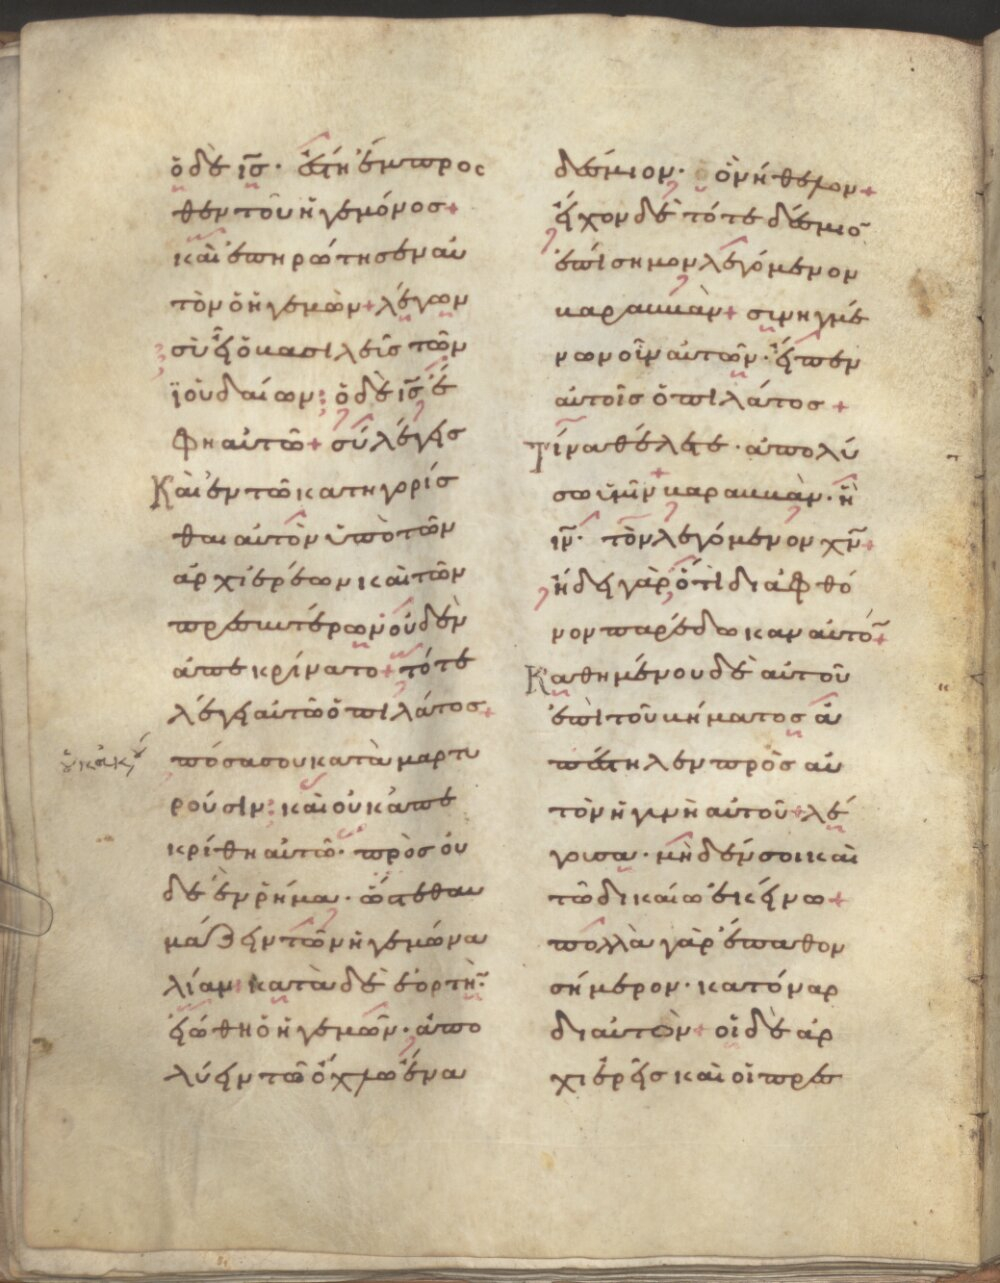 ὁ δὲ ις̅· ἔστη ἔμπροσ
θεν τοῦ ἡγεμόνος+
καὶ ἐπηρώτησεν αυ
τὸν ὁ ἡγεμὼν+ λέγων
σὺ εἶ ὁ βασιλεῖς τῶν
ϊουδαίων; ὁ δὲ ις̅ ἔ
φη αὐτῶ+ σύ λέγεις
Καὶ ἐν τῶ κατηγορίσ
θαι αὐτὸν ὑπὸ τῶν
ἀρχιερέων καὶ τῶν
πρεσβυτέρων οὐδὲν
ἀπεκρίνατο+ τότε
λέγει αὐτῶ ὁ πιλάτος+
πόσα σου κατὰμαρτυ
ροῦσιν; καὶ οὐκ ἀπε
κρίθη αὐτῶ· πρὸς οὐ
δὲ ἐν ῥῆμα· ὥστε θαυ
μάζειν τῶν ἡγεμώνα
λίαν· κατὰ δὲ ἑορτὴ̅·
εἰώθη ὁ ἡγεμῶν· ἀπο
λύειν τῶ ὄχλω ἕνα
δέσμιον· ὃν ἤθελον+
εἶχον δὲ τότε δέσμιο̅
ἐπίσημον λεγόμενον
βαραββὰν+ συνηγμέ
νων οὖν αὐτῶν· εἶπεν
αὐτοῖς ὁ πιλάτος+
Τίνα θέλετε· ἀπολύ
σω ὑμῖν+ βαραββὰν· ἢ
ιν̅· τὸν λεγόμενον χν̅+
ἤδει γὰρ ὅτι διὰ φθό
νον παρέδωκαν αὐτό̅+
Καθημένου δὲ αὐτοῦ
ἐπὶ τοῦ βήματος ἀ
πέστηλεν πρὸς αὐ
τὸν ἡ γυνὴ αὐτοῦ+ λέ
γουσα· μὴδέν σοι καὶ
τῶ δικαίω ἐκείνω+
πολλὰ γὰρ ἔπαθον
σήμερον· κατόναρ
δι αὐτὸν+ οἱ δὲ ἀρ
χιερεῖς καὶ οἱ πρεσ